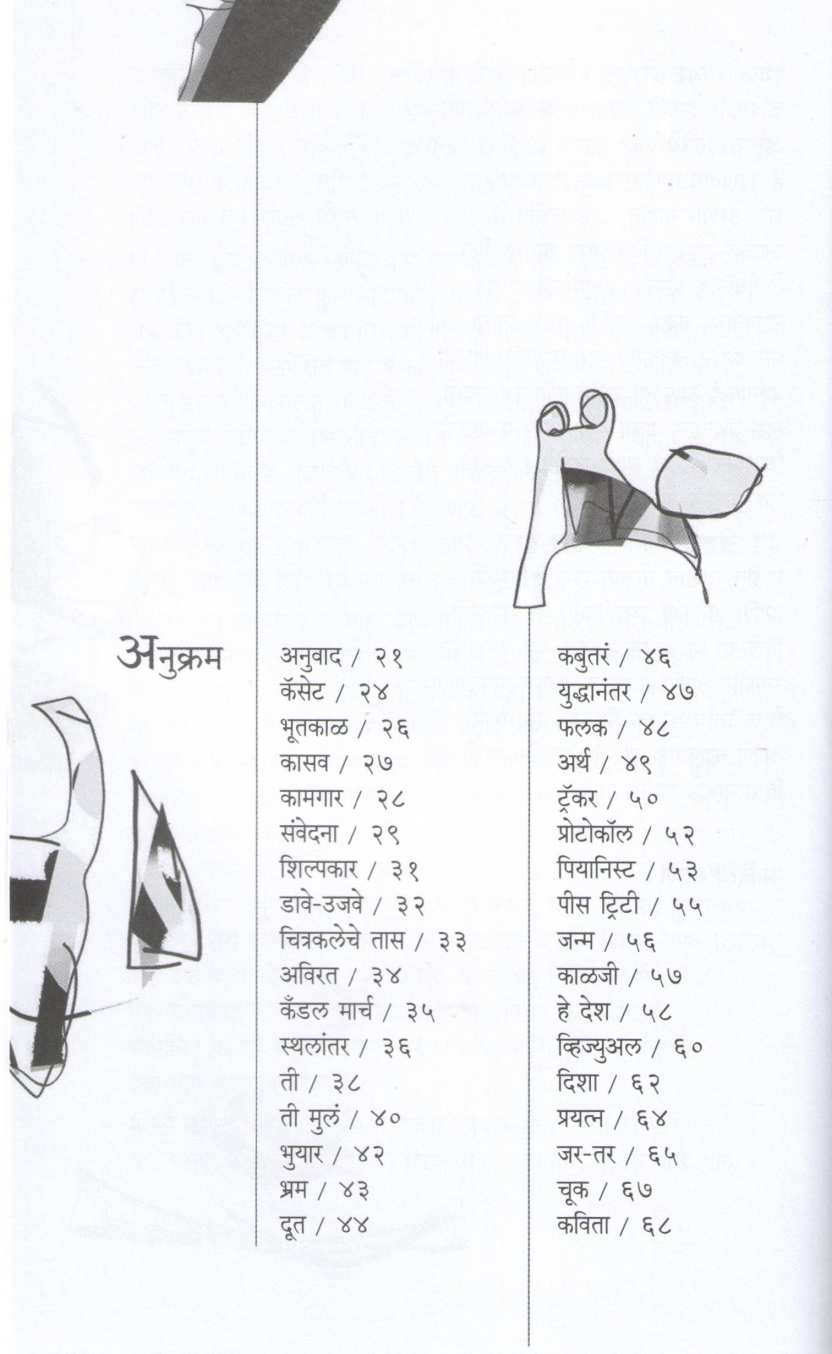 अनुक्रम
अनुवाद / २१
कॅसेट / २४
भूतकाळ / २६
कासव / २७
कामगार / २८
संवेदना / २९
शिल्पकार / ३१
डावे-उजवे / ३२
चित्रकलेचे तास / ३३
अविरत / ३४
कँडल मार्च / ३५
स्थलांतर / ३६
ती / ३८
ती मुलं / ४०
भुयार / ४२
भ्रम / ४३
दूत / ४४
कबुतरं / ४६
युद्धानंतर / ४७
फलक / ४८
अर्थ / ४९
ट्रॅकर / ५०
प्रोटोकॉल / ५२
पियानिस्ट / ५३
पीस ट्रिटी / ५५
जन्म / ५६
काळजी / ५७
हे देश / ५८
व्हिज्युअल / ६०
दिशा / ६२
प्रयत्न / ६४
जर-तर / ६५
चूक / ६७
कविता / ६८